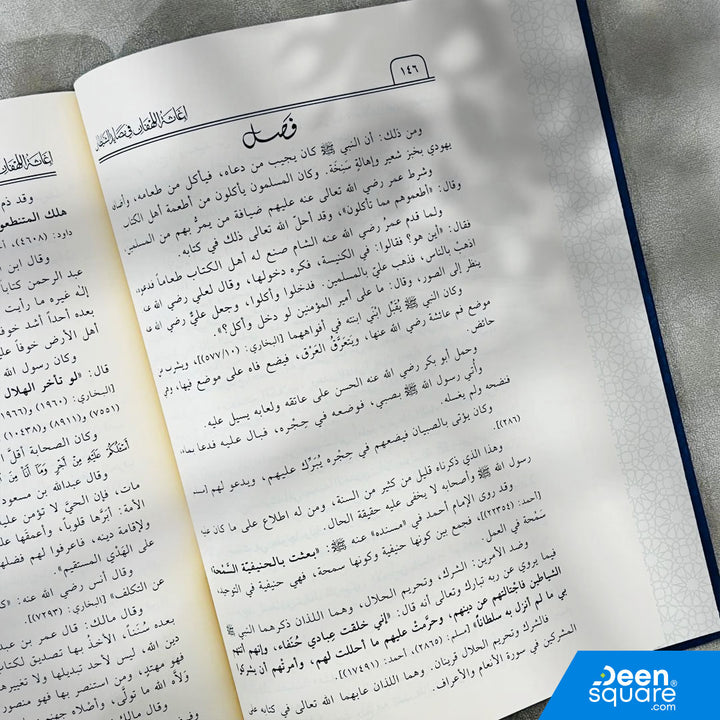 ١٤٦
إغاثة اللهفان في مصايد الشيطان
فصل
ومن ذلك: أن النبي ﷺ كان يجيب من دعاه، فيأكل من طعامه، وأضافه
يهودي بخبز شعير وإهالةٍ سَنِخَة. وكان المسلمون يأكلون من أطعمة أهل الكتاب
وشرط عمر رضي الله تعالى عنه عليهم ضيافة من يمرُّ بهم من المسلمين
وقال: «أطعموهم مما تأكلون»، وقد أحلّ الله تعالى ذلك في كتابه.
ولما قدم عمرُ رضي الله عنه الشام صنع له أهل الكتاب طعاماً فدعوه
فقال: «أين هو؟ فقالوا: في الكنيسة، فكره دخولها، وقال لعلي رضي الله عنه
اذهبْ بالناس، فذهب عليٌ بالمسلمين. فدخلوا وأكلوا، وجعل عليٌّ رضي الله عنه
ينظر إلى الصور، وقال: ما على أمير المؤمنين لو دخل وأكل؟».
وكان النبي ﷺ يُقبِّل ابْنَي ابنته في أفواههما [البخاري: (٥٧٧/١٠)]، ويشرب من
موضع فم عائشة رضي الله عنها، ويتعرَّقُ العَرْق، فيضع فاه على موضع فيها، وهي
حائض.
وحمل أبو بكر رضي الله عنه الحسن على عاتقه ولعابه يسيل عليه.
وأتي رسول الله ﷺ بصبي، فوضعه في حِجْره، فبال عليه فدعا بماء،
فنضحه ولم يغسله.
وكان يؤتى بالصبيان فيضعهم في حِجْره يُبَرِّك عليهم، ويدعو لهم [مسلم:
(٢٨٦)].
وهذا الذي ذكرناه قليل من كثير من السنة، ومن له اطلاع على ما كان عليه
رسول الله ﷺ وأصحابه لا يخفى عليه حقيقة الحال.
وقد روى الإمام أحمد في «مسنده» عنه ﷺ: «بعثت بالحنيفيّة السَّمْحة»
[أحمد: (٢٢٣٥٤)]، فجمع بين كونها حنيفية وكونها سمحة، فهي حنيفية في التوحيد،
سَمْحة في العمل.
وضد الأمرين: الشرك، وتحريم الحلال، وهما اللذان ذكرهما النبي ﷺ
فيما يروى عن ربه تبارك وتعالى أنه قال: «إني خلقت عبادي حُنَفاء، وإنهم أتتهم
الشياطين فاجْتالتْهم عن دينهم، وحرَّمتْ عليهم ما أحللت لهم، وأمرتْهم أن يشركوا
بي ما لم أنزل به سلطاناً» [مسلم: (٢٨٦٥)، أحمد: (١٧٤٩١)].
فالشرك وتحريم الحلال قرينان. وهما اللذان عابهما الله تعالى في كتابه على
المشركين في سورة الأنعام والأعراف.
إغاثة اللهفان
وقد ذم
هلك المتنطعو
داود: (٤٦٠٨)،
وقال ابن
عبد الرحمن كتاباً
إله غيره ما رأيت
بعده أحداً أشد خوفاً
أهل الأرض خوفاً
وكان رسول الله
قال: «لو تأخر الهلال
وكان الصحابة أقلَّ
أَسْـَٔلُكُمْ عَلَيْهِ مِنْ أَجْرٍ وَمَا أَنَا مِنَ
وقال عبدالله بن مسعود
مات، فإن الحيَّ لا تؤمن
الأمة: أبرَّها قلوباً، وأعمقها
ولإقامة دينه، فاعرفوا لهم فضلهم
على الهَدْي المستقيم».
وقال أنس رضي الله عنه:
عن التكلف» [البخاري: (٧٢٩٣)].
وقال مالك: قال عمر بن عبد
بعده سُنَناً، الأخذُ بها تصديق لكتاب
دين الله، ليس لأحد تبديلها ولا تغييرها
فهو مهتدٍ، ومن استنصر بها فهو منصور
وَلاَّه الله ما تولّى، وأصلاه جهنم
وقال مالك
Deen
square®
.com